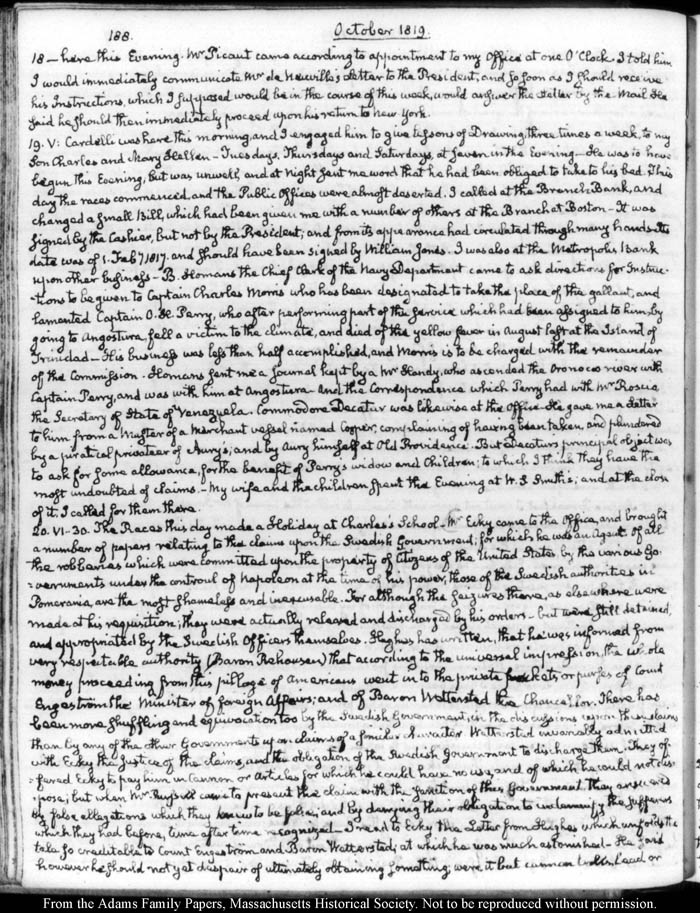 188.
October 1819.
18 – here this Evening. Mr Picaut came according to appointment to my Office at one O'Clock I told him
I would immediately communicate Mr de Neuville's Letter to the President; and so soon as I should receive
his Instructions, which I supposed would be in the course of this week, would answer the Letter by the Mail He
said he should then immediately proceed upon his return to New York.
19. V: Cardelli was here this morning and I engaged him to give Lessons of Drawing, three times a week, to my
Son Charles and Mary Hellen – Tuesdays, Thursdays and Saturdays, at Seven in the Evening – He was to have
begun this Evening, but was unwell, and at Night sent me word that he had been obliged to take to his bed. This
day the races commenced, and the Public Offices were almost deserted. I called at the Branch Bank, and
changed a small Bill, which had been given me with a number of others at the Branch at Boston – It was
signed by the Cashier, but not by the President; and from its appearance had circulated through many hands. Its
date was of 1. Feby 1817. and should have been signed by William Jones. I was also at the Metropolis Bank
upon other business – B. Homans the Chief Clerk of the Navy Department came to ask directions for Instruc-
-tions to be given to Captain Charles Morris who has been designated to take the place of the gallant, and
lamented Captain O. H. Perry, who after performing part of the service which had been assigned to him, by
going to Angostura fell a victim to the climate, and died of the yellow fever in August last at the Island of
Trinidad – His business was less than half accomplished, and Morris is to be charged with the remainder
of the Commission. Homans sent me a Journal kept by a Mr Handy, who ascended the Oronoco river with
Captain Perry, and was with him at Angostura And the Correspondence which Perry had with Mr Roscio
the Secretary of State of Venezuela. Commodore Decatur was likewise at the Office. He gave me a Letter
to him from a Master of a Merchant vessel named Cooper, complaining of having been taken and plundered
by a piratical privateer of Aury's; and by Aury himself at Old Providence. But Decatur's principal object was
to ask for some allowance, for the benefit of Perry's widow and Children; to which I think they have the
most undoubted of claims. – My wife and the children spent the Evening at W. S. Smith's; and at the close
of it I called for them there.
20. VI–30. The Races this day made a Holiday at Charles's School – Mr Ecky came to the Office, and brought
a number of papers relating to the claims upon the Swedish Government; for which he was an Agent. Of all
the robberies which were committed upon the property of Citizens of the United States by the various Go-
-vernments under the controul of Napoleon at the time of his power, those of the Swedish authorities in
Pomerania, are the most shameless and inexcusable. For although the seizures there, as elsewhere were
made at his requisition; they were actually released and discharged by his orders – but were still detained,
and appropriated by the Swedish Officers themselves. Hughes has written, that he was informed from
very respectable authority (Baron Rehausen) that according to the universal impression, the whole
money proceeding from this pillage of Americans went in to the private pockets or purses of Count
Engestrom the Minister of foreign Affairs; and of Baron Wetterstedt the Chancellor. There has
been more shuffling and equivocation too by the Swedish Government, in the discussions upon these claims
than by any of the other Governments upon claims of a similar Wetterstedt invariably admitted
with Ecky the justice of the claims, and the obligation of the Swedish Government to discharge them. They of-
-fered Ecky to pay him in Cannon or Articles for which he could have no use, and of which he could not dis-
-pose; but when Mr Russell came to present the claim with the sanction of this Government They answered
by false allegations which they knew to be false; and by denying their obligation to indemnify the sufferers
which they had before, time after time recognized – I read to Ecky the Letter from Hughes which unfolds the
tale so creditable to Count Engestrom and Baron Wetterstedt; at which he was much astonished – He said
however he should not yet despair of ultimately obtaining something; were it but cannon Lead or
From the Adams Family Papers, Massachusetts Historical Society. Not to be reproduced without permission.